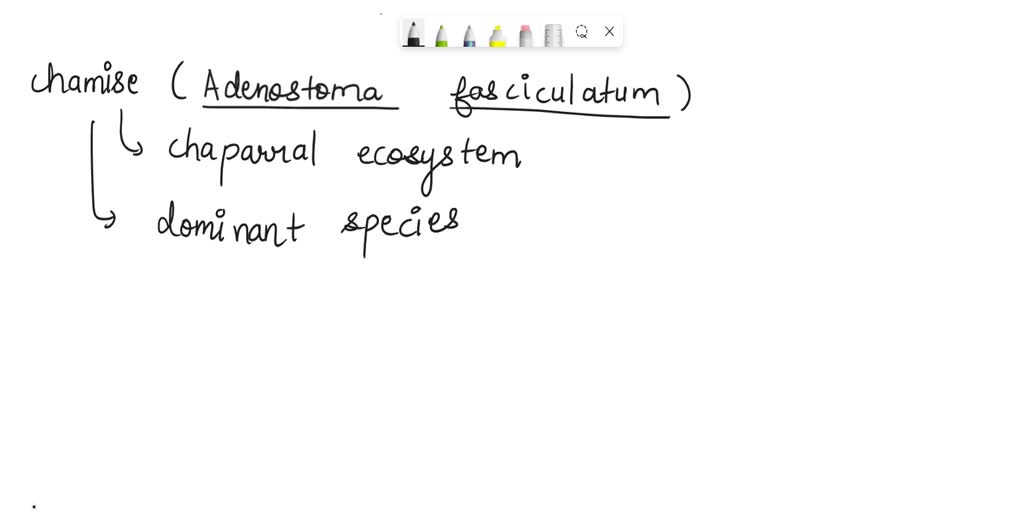 chamise (Adenostoma fasciculatum)
chaparral ecosystem
dominant species